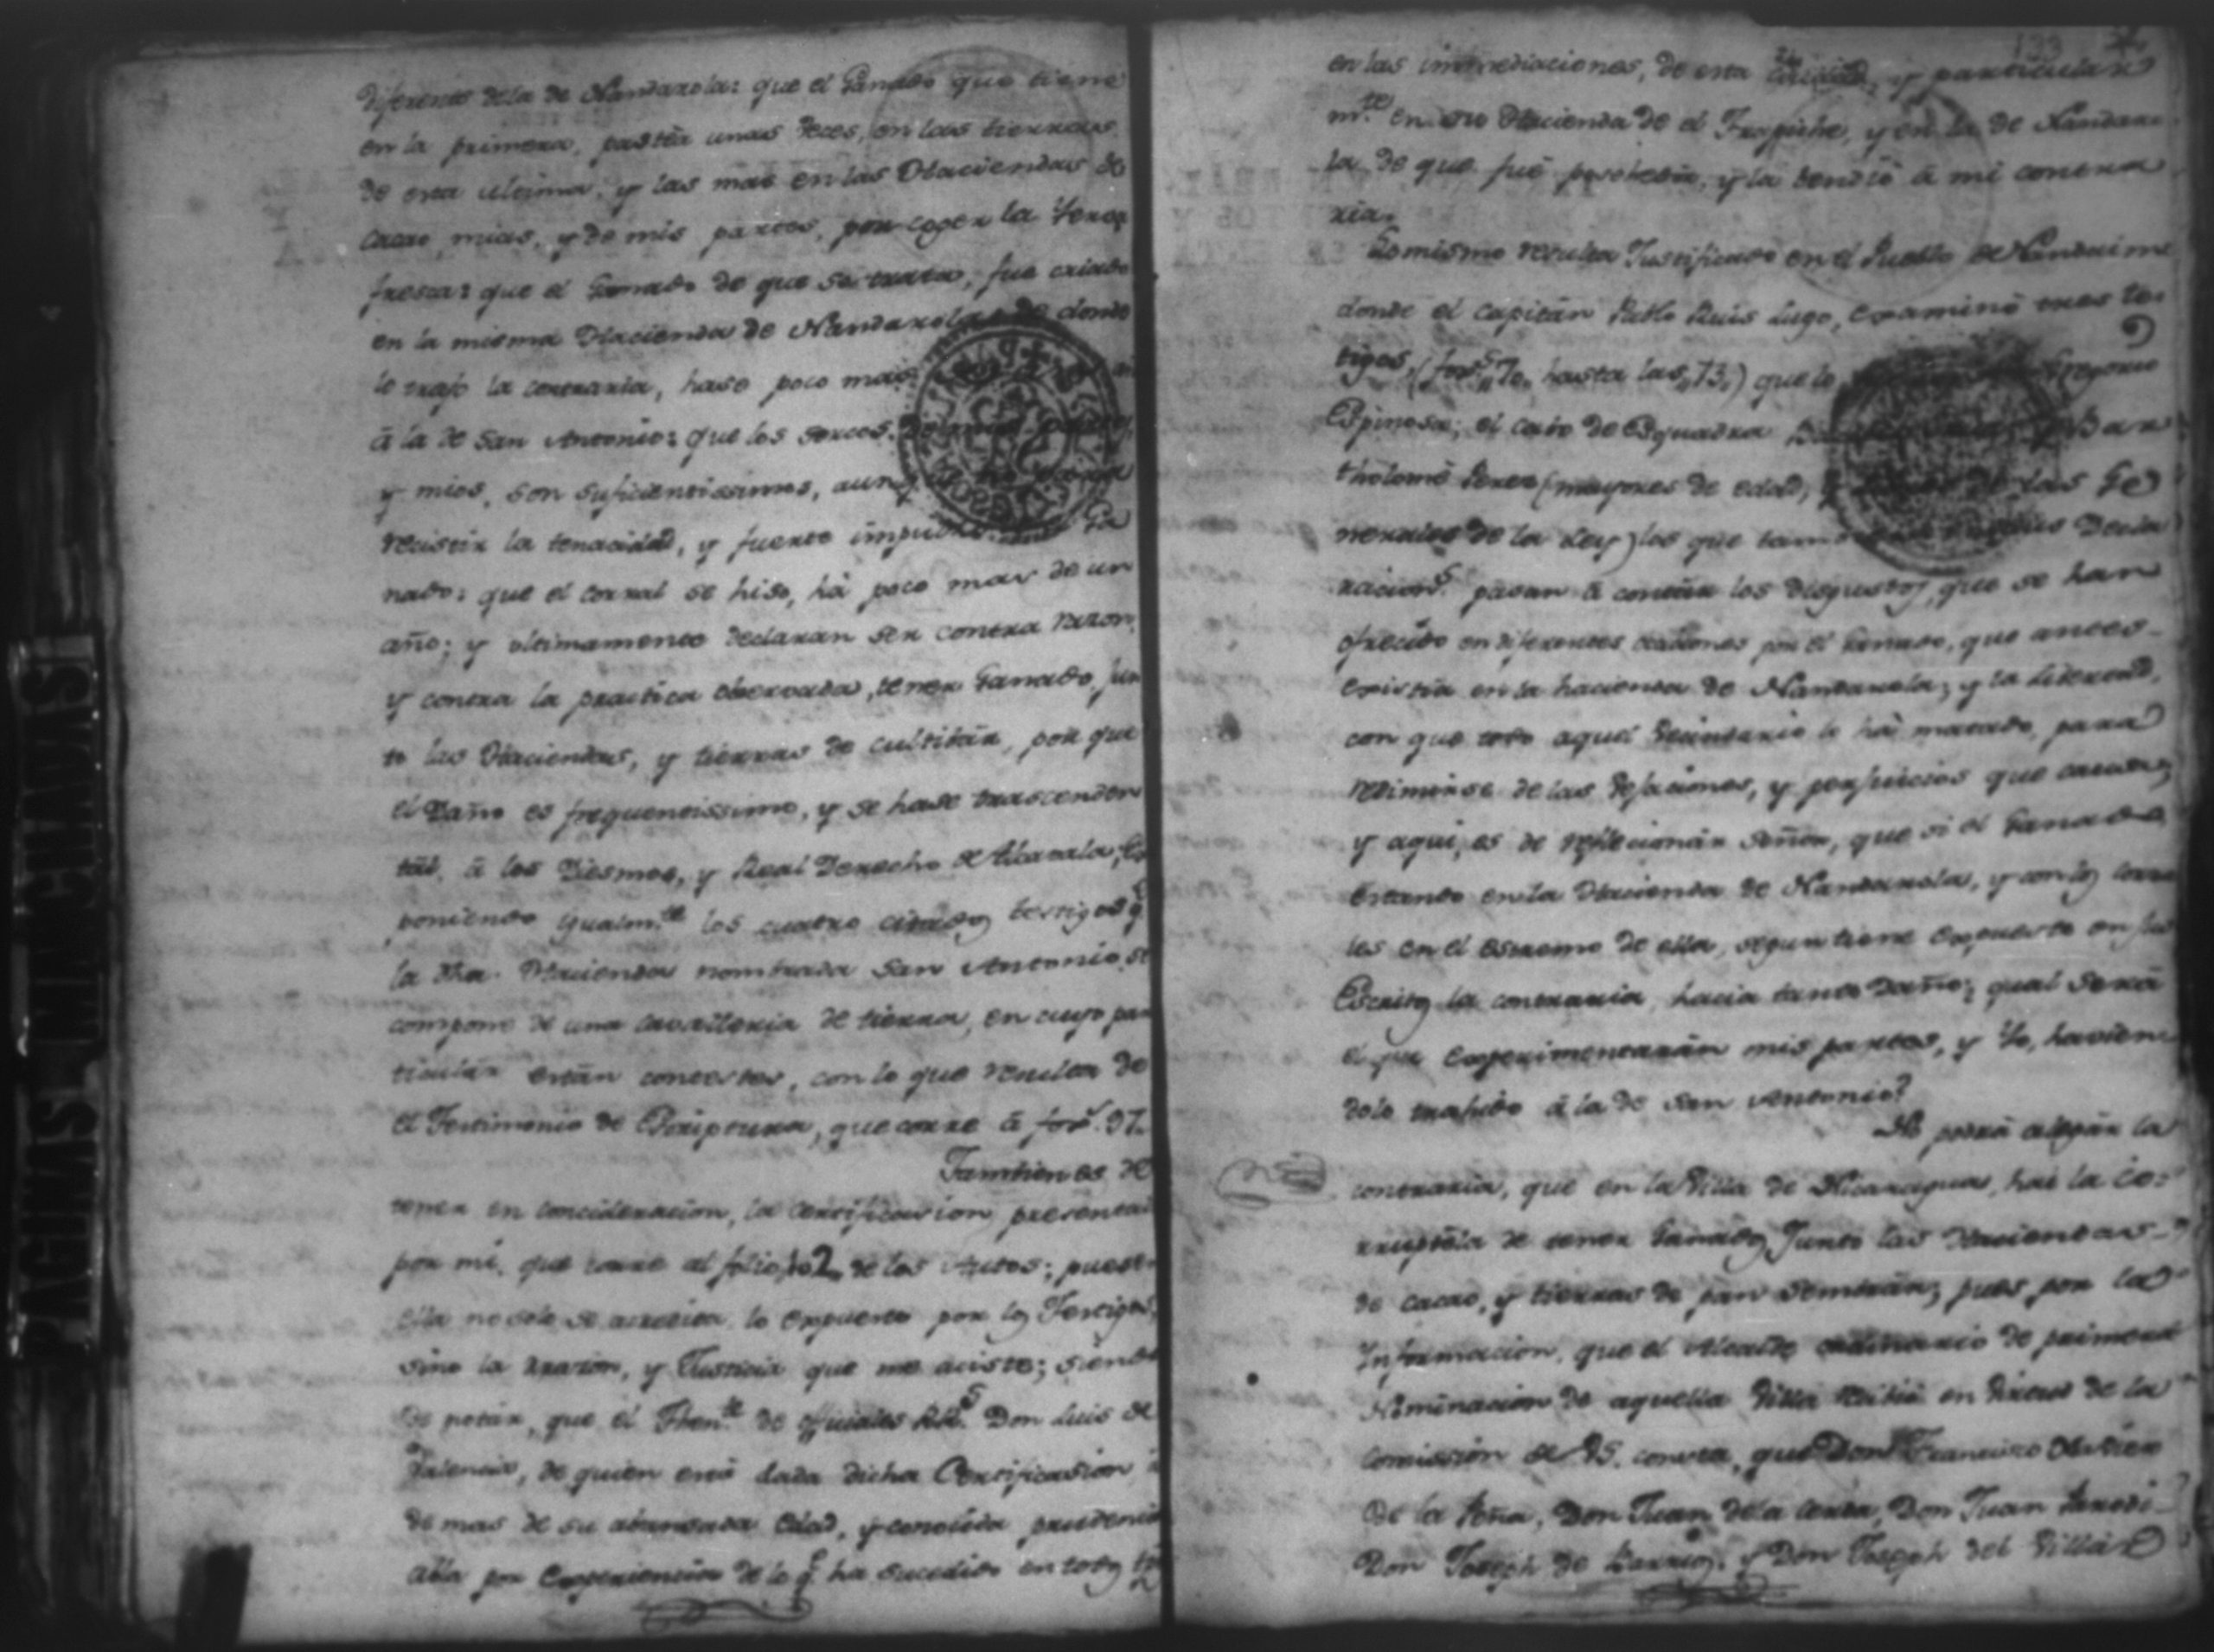 diferente dela de Nandarola: que el Ganado que tiene
en la primera, pastea unas veces, en las tierras
de esta ultima, y las mas en las Haciendas de
Cacao, mias, y de mis partes, por coger la Yerva
fresca: que el Ganado de que se trata, fue criado
en la misma Hacienda de Nandarola de donde
lo trajo la contraria, hase poco mas
â la de San Antonio: que los sercos,
y mios, son suficientissimos, aunq
recistir la tenacidad, y fuerte Ga
nado: que el corral se hiso, hà poco mas de un
año; y ultimamente declaran ser contra razon,
y contra la practica observada, tener Ganado jun
to las Haciendas, y tierras de cultibar, por que
el Daño es frequentissimo, y se hase trascenden
tal, â los Diesmos, y Real Derecho de Alcavala; Ex
poniendo igualm.te los cuatro citados testigos q
la dha. Hacienda nombrada San Antonio, se
compone de una cavalleria de tierra, en cuyo par
ticular están contestes, con lo que resulta de
el Testimonio de Escriptura, que corre â fox.s 97.
Tambien es de
tener en concideracion, la certificacion presentada
por mi, que corre al folio 102 de los Autos; pues
ella no solo se acredita lo expuesto por los Testigos,
sino la rrazon, y Justicia que me aciste; siendo
de notar, que el Then.te de officiales R.s Don Luis de
Valencia, de quien está dada dicha Certificasion, a
de mas de su abansada Edad, y conosida prudencia
abla por Experiencia de lo q ha sucedido en todos
en las immediaciones, de esta Ciudad, y particular
m.te en su Hacienda de el Trapiche, y en la de Nandaro
la, de que fué posehedor, y la vendió â mi contra
ria.
Lo mismo resulta Justificado en el Pueblo de Nandaime
donde el capitán Pablo Ruis Lugo, examinó tres tes
tigos, (fox.s 70. hasta las 73.) que lo Gregorio
Espinosa; el cavo de Esquadra Bar
tholomé Peres (mayores de edad, las Ge
nerales de la Ley) los que tam Decla
racion.s pasan â contar los disgustos, que se han
ofrecido en diferentes ocaciones por el Ganado, que antes
existia en la hacienda de Nandarola; y la livertad,
con que todo aquel Vecindario lo há matado, para
redimirse de las vejaciones, y perjuicios que causa;
y aqui, es de reflecionar Señor, que si el Ganado,
estando en la Hacienda de Nandarola, y con los corra
les en el estremo de ella, segun tiene expuesto en sus
Escritos la contraria, hacia tanto Daño; qual será
el que Experimentarán mis partes, y Yo, havien
dolo trahido â la de San Antonio?
No podrá alegar la
contraria, que en la Villa de Nicaragua, hai la co-
rruptela de tener Ganados Junto las Haciendas
de cacao, y tierras de pan sembrar; pues por la
Informacion, que el Alcalde ordinario de primera
Nominacion de aquella Villa recibió en virtud de la
comissión de VS. consta, que Don Francisco
de la Peña, Don Juan dela Cerda, Don Juan
Don Joseph de Barrios, y Don Joseph del Villar